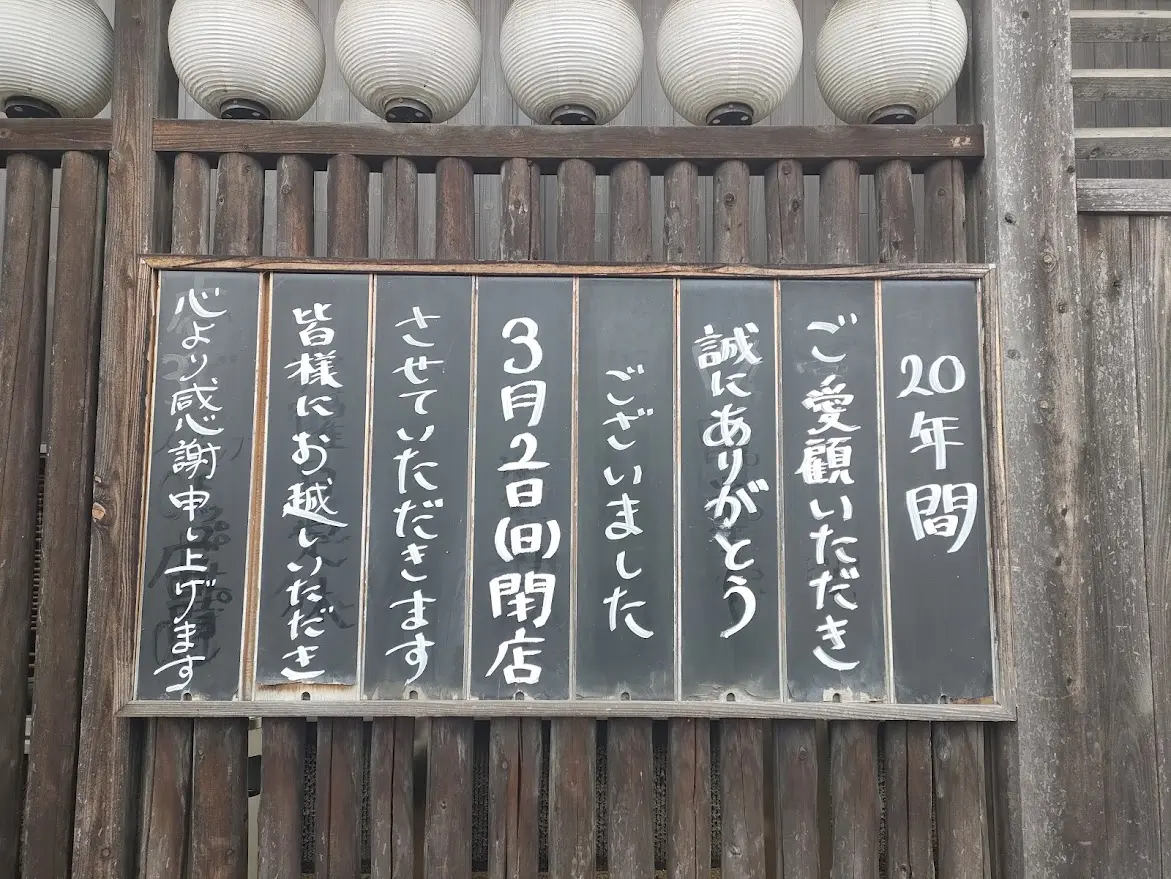 20年間
ご愛顧いただき
誠にありがとう
ございました
3月2日(日)閉店
させていただきます
皆様にお越しいただき
心より感謝申し上げます